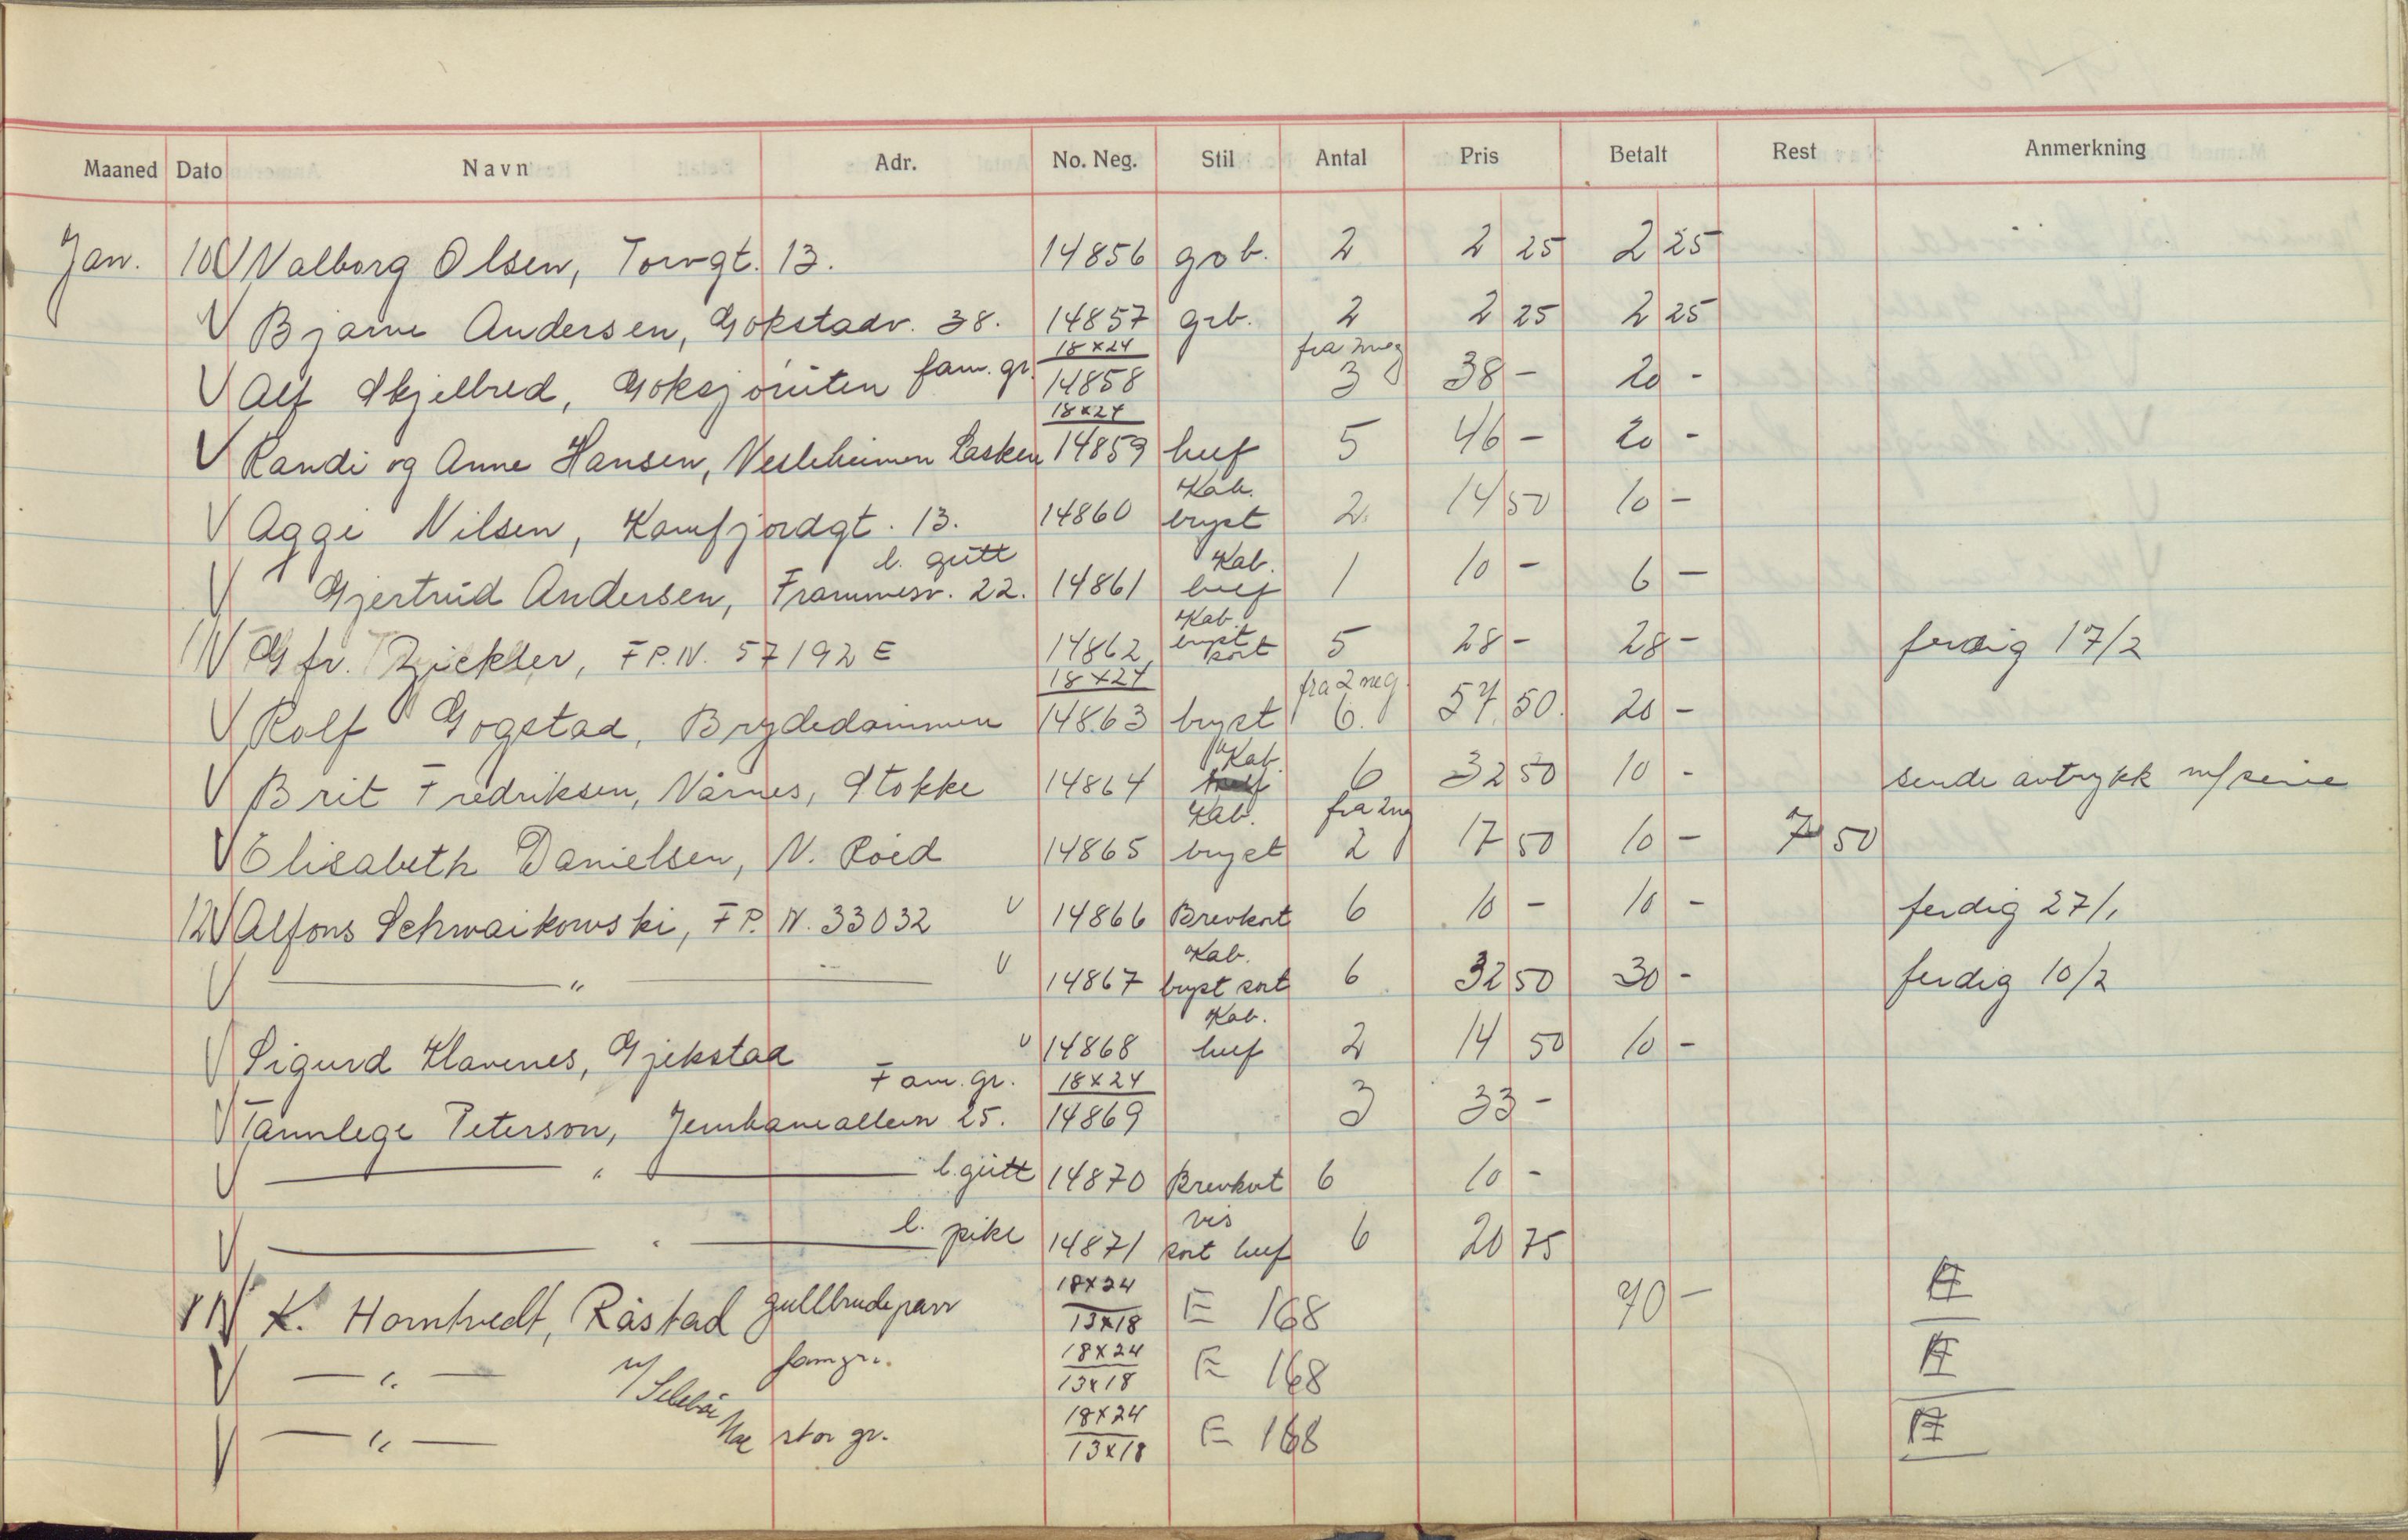 Maaned Dato Navn Adr. No. Neg. Stil Antal Pris Betalt Rest Anmerkning
Jan. 10 V Valborg Olsen, Torvgt. 13. 14856 gob. 2 2 25 2 25
V Bjarne Andersen, Gokstadv. 38. 14857 grb. 2 2 25 2 25
V Alf Skjelbred, Goksjoruten fam. gr. 18x24 14858 fra 2 neg 3 38 - 20 -
V Randi og Anne Hansen, Vesleheimen Lasken 18x24 14859 huf 5 46 - 20 -
V Aggi Nilsen, Kamfjordgt. 13. 14860 Kab. bryst 2 14 50 10 -
V Gjertrud Andersen, Frammesv. 22. l. gutt 14861 Kab. huf 1 10 - 6 -
11 V Gfr. Zickler, F.P.N. 57192 E 14862 Kab. bryst sort 5 28 - 28 - ferdig 17/2
V Rolf Gogstad, Brydedammen 18x24 14863 bryst fra 2 neg. 6. 57 50. 20 -
V Brit Fredriksen, Vårnes, Stokke 14864 Kab. 6 32 50 10 - sende avtrykk m/ serie
V Elisabeth Danielsen, N. Roed 14865 Kab. bryst fra 2 neg 2 17 50 10 - 7 50
12 V Alfons Schwaikowski, F.P. N. 33032 V 14866 Brevkort 6 10 - 10 - ferdig 27/1
V — " — V 14867 Kab. bryst sort 6 32 50 30 - ferdig 10/2
V Sigurd Klavenes, Gjekstad V 14868 Kab. huf 2 14 50 10 -
V Tannlege Peterson, Jernbanealleen 25. Fam. gr. 18x24 14869 3 33 -
V — " — l. gutt 14870 Brevkort 6 10 -
V — " — l. pike 14871 vis sort huf 6 20 75
V K. Horntvedt, Råstad gullbrudepar 18x24 13x18 E 168 70 -
V — " — famgr. 18x24 13x18 E 168
V — " — stor gr. 18x24 13x18 E 168